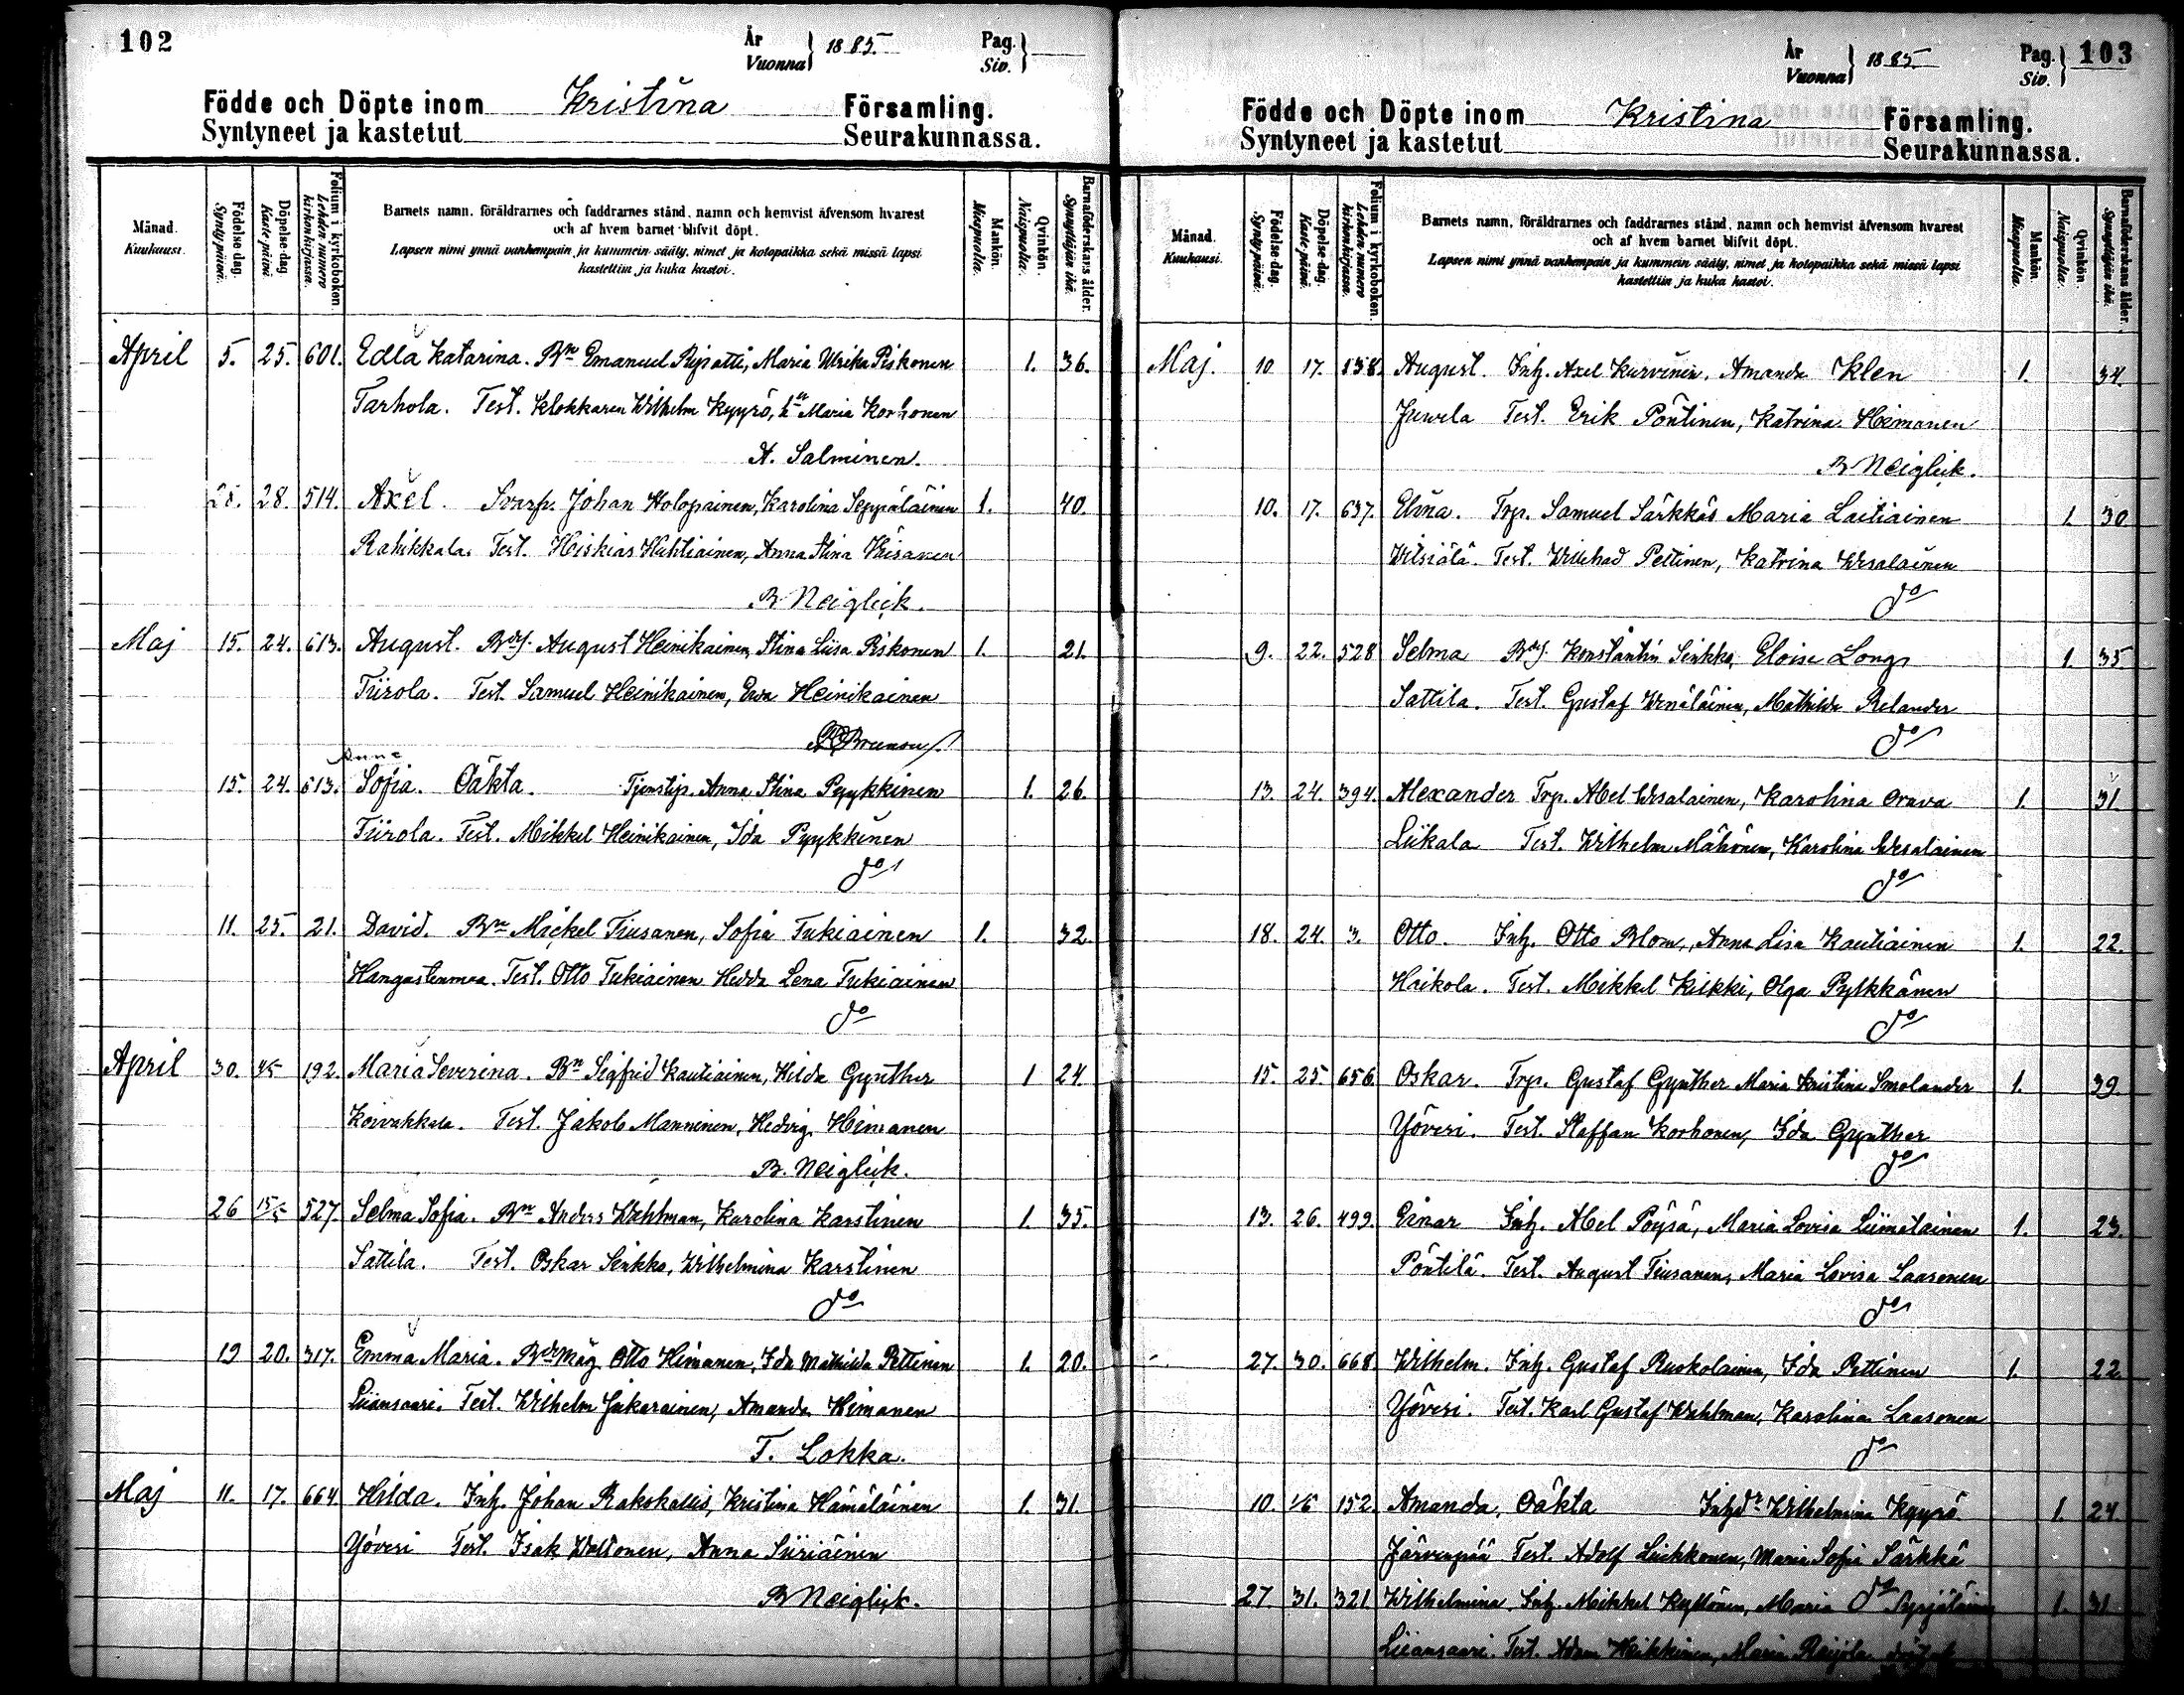 102
År
Vuonna } 1885. Pag.
Siv. }
Födde och Döpte inom Kristina Församling.
Syntyneet ja kastetut Seurakunnassa.
Månad.
Kuukausi.
Födelse-dag.
Synty-päivä.
Döpelse-dag.
Kaste-päivä.
Folium i kyrkoboken.
Lehden numero kirkonkirjassa.
Barnets namn, föräldrarnes och faddrarnes stånd, namn och hemvist äfvensom hvarest
och af hvem barnet blifvit döpt.
Lapsen nimi ynnä vanhempain ja kummein sääty, nimet ja kotopaikka sekä missä lapsi
kastettiin ja kuka kastoi.
Mankön.
Miespuolta.
Qvinkön.
Naispuolta.
Barnaföderskans ålder.
Synnyttäjän ikä.
April 5. 25. 601. Edla Katarina. Bn Emanuel Ripatti, Maria Ulrika Piskonen 1. 36.
Tarhola. Test. Klokkaren Wilhelm Kyyrö, hu Maria Korhonen
A. Salminen.
28. 28. 514. Axel. Svarp. Johan Holopainen, Karolina Seppäläinen 1. 40.
Rahikkala. Test. Heiskias Huhtiainen, Anna Stina
B. Neiglick.
Maj 15. 24. 613. August. Bdsj. August Heinikainen, Stina Liisa Piskonen 1. 21.
Tiirola. Test. Samuel Heinikainen, Ewa Heinikainen
Anna
15. 24. 613. Sofia. Oäkta. Tjenstep. Anna Stina Pyykkinen 1. 26.
Tiirola. Test. Mikkel Heinikainen, Ida Pyykkinen
do
11. 25. 21. David. Bn Mickel Tiusanen, Sofia Tukiainen 1. 32.
Hangastenmaa. Test. Otto Tukiainen Hedda Lena Tukiainen
do
April 30. 4/5 192. Maria Severina. Bn Sigfrid Kautiainen, Hilda Gynther 1 24.
Koivakkala. Test. Jakob Manninen, Hedvig Heimanen
B. Neiglick.
26 15/5 527. Selma Sofia. Bn Anders Wahlman, Karolina Karstinen 1. 35.
Sattila. Test. Oskar Sinkko, Wilhelmina Karstinen
do
19 20. 317. Emma Maria. Bdr måg Otto Himanen, Ida Mathilda Pettinen 1. 20.
Liiansaari. Test. Wilhelm Jukarainen, Amanda Himanen
T. Lokka.
Maj 11. 17. 664. Hilda. Inh. Johan Rakokallio, Kristina Hämäläinen 1. 31.
Yöveri Test. Isak Waltonen, Anna Siiriäinen
B Neiglick.
År
Vuonna } 1885. Pag.
Siv. } 103
Födde och Döpte inom Kristina Församling.
Syntyneet ja kastetut Seurakunnassa.
Månad.
Kuukausi.
Födelse-dag.
Synty-päivä.
Döpelse-dag.
Kaste-päivä.
Folium i kyrkoboken.
Lehden numero kirkonkirjassa.
Barnets namn, föräldrarnes och faddrarnes stånd, namn och hemvist äfvensom hvarest
och af hvem barnet blifvit döpt.
Lapsen nimi ynnä vanhempain ja kummein sääty, nimet ja kotopaikka sekä missä lapsi
kastettiin ja kuka kastoi.
Mankön.
Miespuolta.
Qvinkön.
Naispuolta.
Barnaföderskans ålder.
Synnyttäjän ikä.
Maj. 10 17. 138. August. Inh. Axel Kurvinen, Amanda Klen 1. 34.
Juurela Test. Erik Pöntinen, Katrina Heimonen
B Neiglick.
10. 17. 637. Elina. Trp. Samuel Särkkäs Maria Laitiainen 1. 30
Witsiälä. Test. Willehad Pettinen, Katrina Wesalainen
do
9. 22. 528 Selma Bdsj. Konstantin Sinkko, Eloise Long 1. 35
Sattila. Test. Gustaf Wenäläinen, Mathilda Relander
do
13. 24. 394. Alexander Trp. Abel Wesalainen, Karolina Orava 1. 31
Liikala Test. Wilhelm Mähönen, Karolina Wesalainen
do
18. 24. 3. Otto. Inh. Otto Blom, Anna Lisa Kautiainen 1. 22.
Haikola. Test. Mikkel Kilkki, Olga Pylkkänen
do
15. 25. 656. Oskar. Trp. Gustaf Gynther Maria Kristina Smolander 1. 39.
Yöveri. Test. Staffan Korhonen, Ida Gynther
do
13. 26. 499. Einar Inh. Abel Pöysä, Maria Lovisa Liimatainen 1. 23.
Pöntilä. Test. August Tiusanen, Maria Lovisa Laasonen
do
27. 30. 668 Wilhelm. Inh. Gustaf Ruokolainen, Ida Pettinen 1. 22
Yöveri. Test. Karl Gustaf Wahlman, Karolina Laasonen
do
10. 1/6 152. Amanda, Oäkta Inhdr Wilhelmina Kyyrö 1. 24.
Järvenpää Test. Adolf Liukkonen, Maria Sofia Särkkä
do
27. 31. 321 Wilhelmina Inh. Mikkel Kyllönen, Maria Syrjäläinen 1. 31
Liiansaari. Test. Adam Heikkinen, Maria